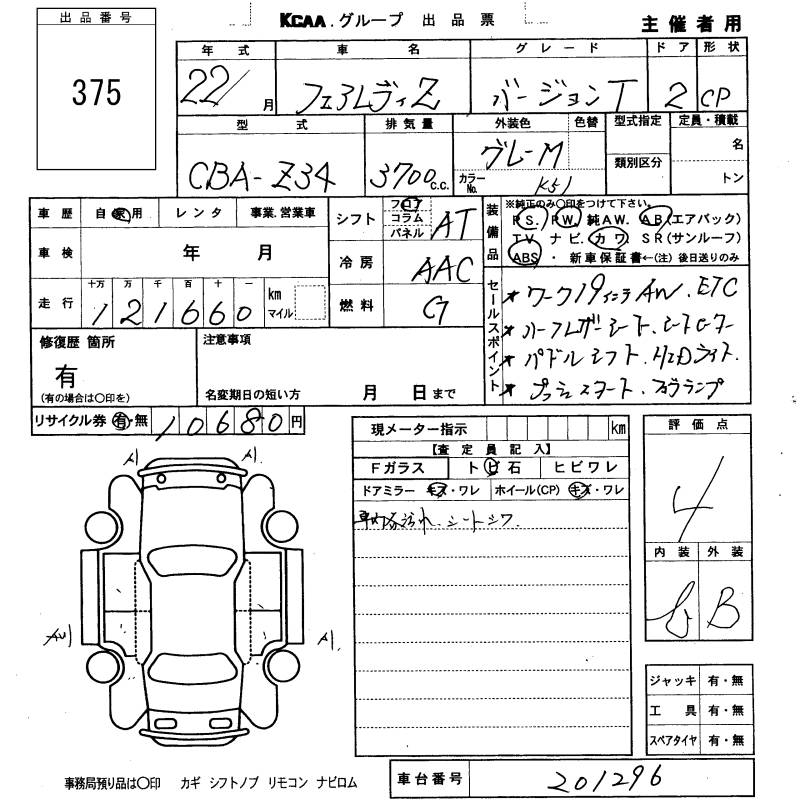 出品番号
375
KCAA.グループ 出品票
主催者用
年式 車名 グレード ドア 形状
22/月 フェアレディZ バージョンT 2 CP
型式 排気量 外装色 色替 型式指定 定員・積載
CBA-Z34 3700c.c. グレーM 類別区分 名
カラーNo. K51 トン
車歴 自家用 レンタ 事業.営業車
シフト フロア コラム パネル AT
装備品 ※純正のみ○印をつけて下さい。
P.S. P.W. 純AW. A.B(エアバック)
T.V. ナビ. カワ. SR(サンルーフ)
ABS・ 新車保証書←(注)後日送りのみ
車検 年 月
冷房 AAC
走行 十万 万 千 百 十 一
121660 km マイル
燃料 G
セールスポイント
★ワーク19インチAW.ETC
★ハーフレザーシート.シートヒーター
★パドルシフト.HIDライト.
★プッシュスタート.フォグランプ
修復歴 箇所
有
(有の場合は○印を)
注意事項
名変期日の短い方 月 日まで
リサイクル券 有・無 10680円
現メーター指示 km
【査定員記入】
Fガラス トビ石 ヒビワレ
ドアミラー キズ・ワレ ホイール(CP) キズ・ワレ
車内汚れ.シートシワ.
評価点
4
内装 外装
B
A1 A1.
A1.
ジャッキ 有・無
工具 有・無
スペアタイヤ 有・無
事務局預り品は○印 カギ シフトノブ リモコン ナビロム
車台番号 201296